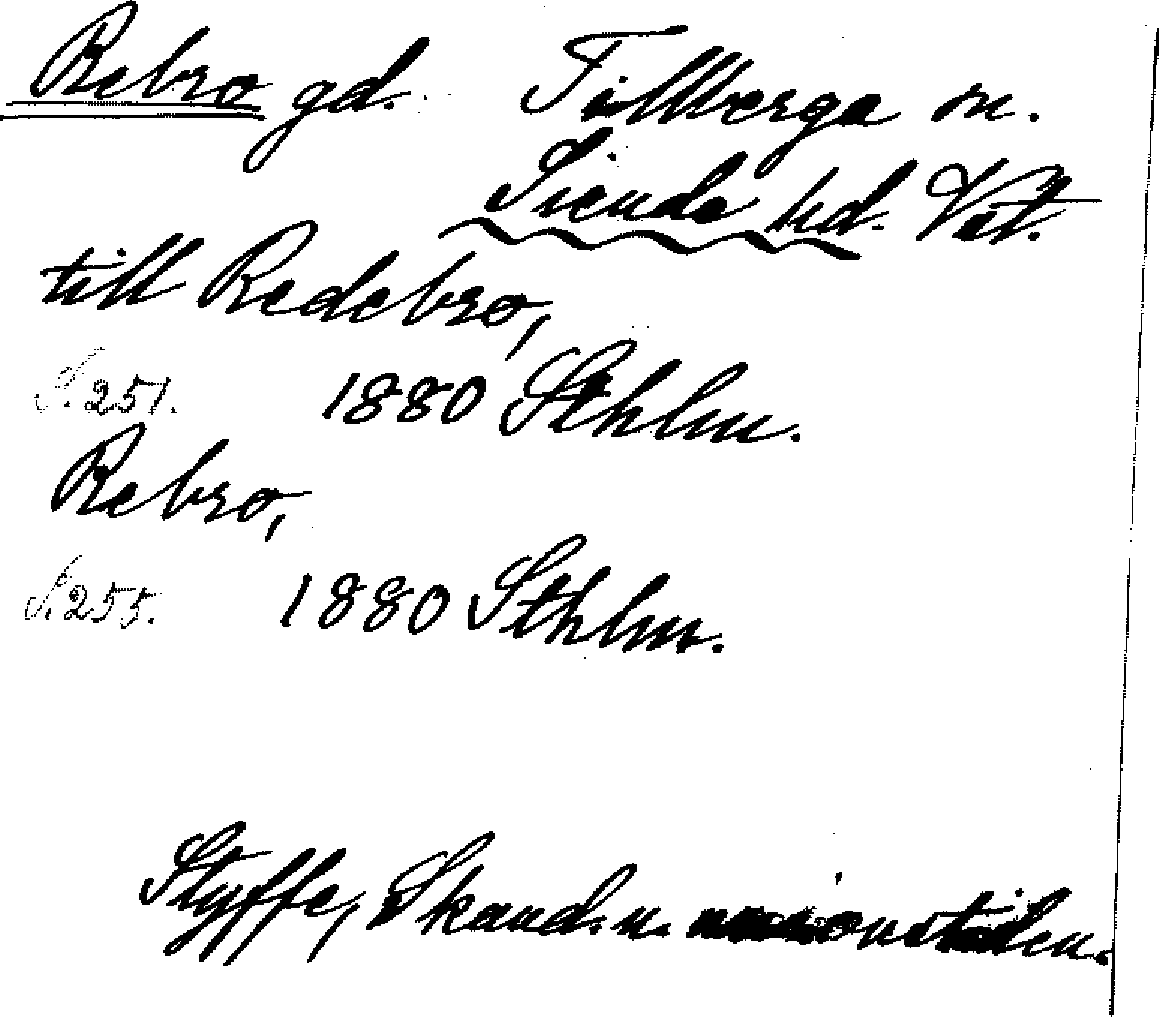 Rebro gd. Tillberga sn.
Siende hd. Vstm.
till Redebro,
S. 251. 1880 Sthlm.
Rebro,
S. 255. 1880 Sthlm.
Styffe, Skand. u. unionstiden.